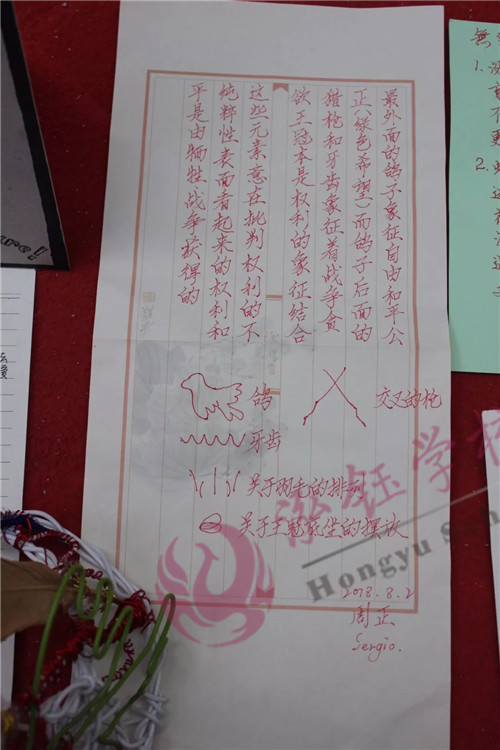 最外面的鸽子象征自由和平公
正(绿色希望)而鸽子后面的
猎枪和牙齿象征着战争贪
欲王冠本是权利的象征结合
这些元素意在批判权利的不
纯粹性表面看起来的权利和
平是由牺牲战争获得的
交叉的枪
鸽
牙齿
关于羽毛的排列
关于王冠底座的摆放
2018.8.2
周正
Sergio.
泓钰学校
Hongyu S
無
1.
2.